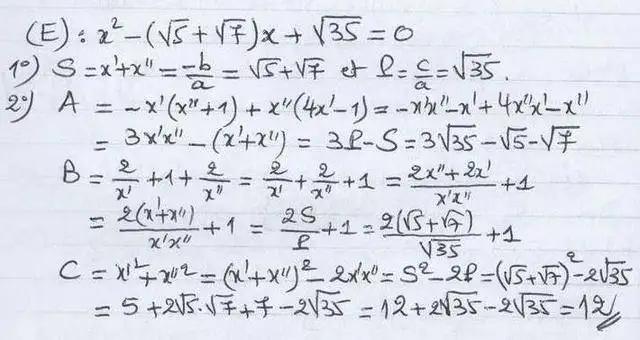 (E): x² - (√5 + √7)x + √35 = 0
1°) S = x' + x'' = -b/a = √5 + √7 et P = c/a = √35.
2°) A = -x'(x''+1) + x''(4x'-1) = -x'x'' - x' + 4x''x' - x''
= 3x'x'' - (x'+x'') = 3P - S = 3√35 - √5 - √7
B = 2/x' + 1 + 2/x'' = 2/x' + 2/x'' + 1 = (2x''+2x')/(x'x'') + 1
= 2(x'+x'')/(x'x'') + 1 = 2S/P + 1 = 2(√5+√7)/√35 + 1
C = x'² + x''² = (x'+x'')² - 2x'x'' = S² - 2P = (√5+√7)² - 2√35
= 5 + 2√5·√7 + 7 - 2√35 = 12 + 2√35 - 2√35 = 12